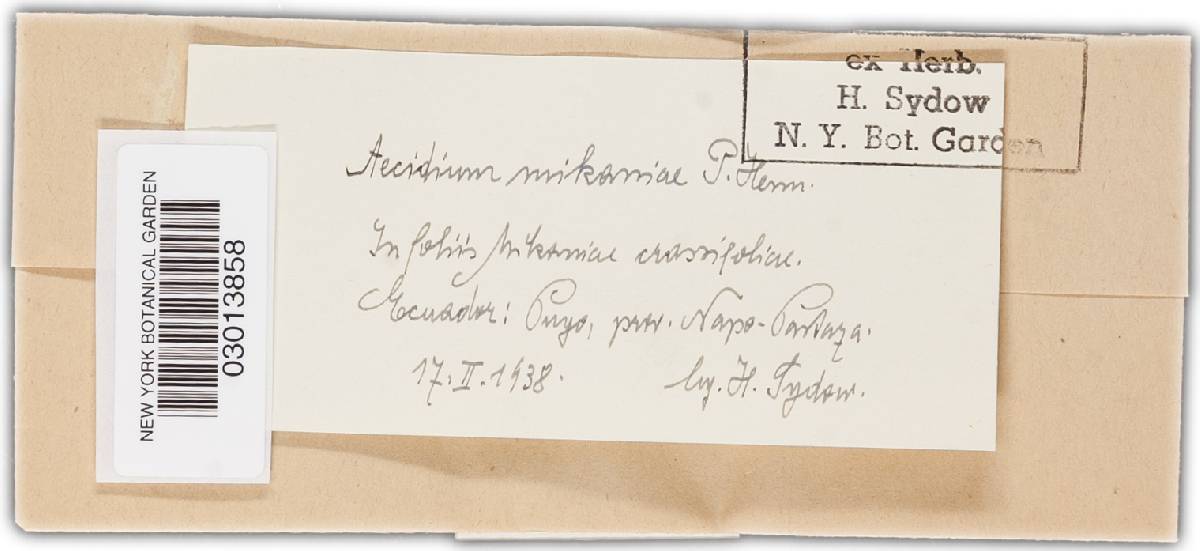 ex Herb.
H. Sydow
N. Y. Bot. Garden
Aecidium mikaniae P. Henn.
In foliis Mikaniae crassifoliae.
Ecuador: Puyo, prov. Napo-Pastaza.
17. II. 1938. leg. H. Sydow.
NEW YORK BOTANICAL GARDEN
03013858